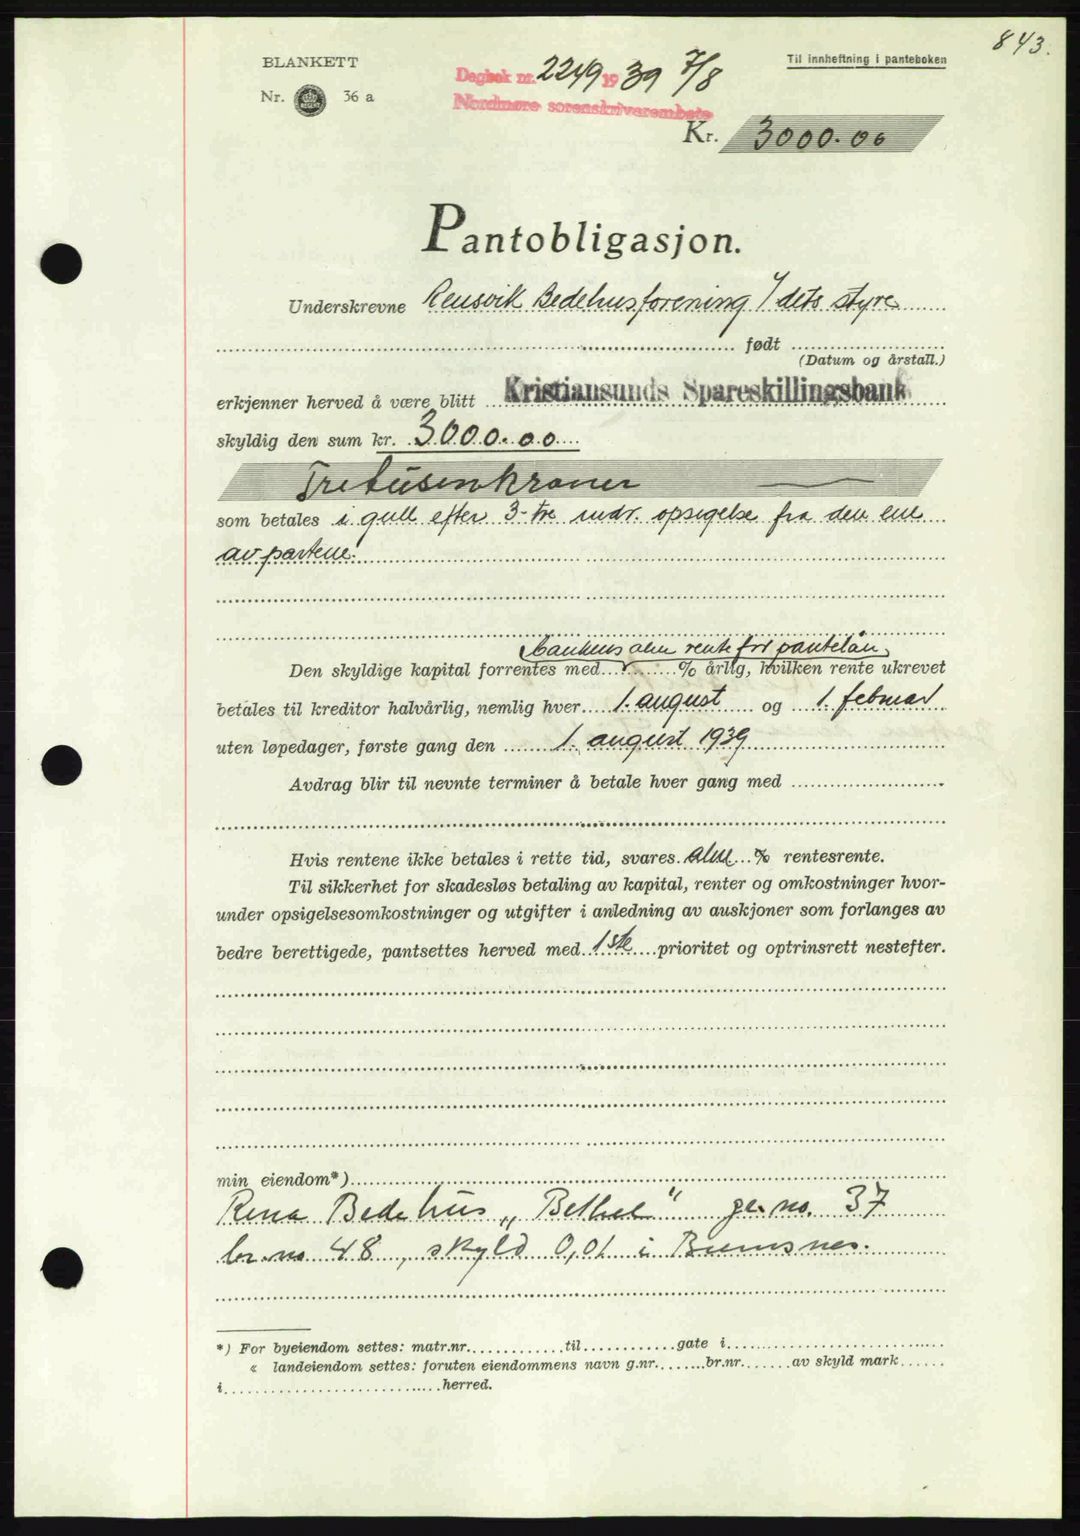 843.
BLANKETT
Nr. 36 a
Dagbok nr. 2249 1939 7/8
Nordmøre sorenskriverembete
Til innheftning i panteboken
Kr. 3000.00
Pantobligasjon.
Underskrevne Rensvik Bedehusforening v/ dets styre
født
(Datum og årstall.)
erkjenner herved å være blitt Kristiansunds Spareskillingsbank
skyldig den sum kr. 3000.00
Tretusenkroner
som betales i gull efter 3-tre mdr. opsigelse fra den ene
av partene.
bankens alm rente for pantelån
Den skyldige kapital forrentes med % årlig, hvilken rente ukrevet
betales til kreditor halvårlig, nemlig hver 1. august og 1. februar
uten løpedager, første gang den 1. august 1939
Avdrag blir til nevnte terminer å betale hver gang med
Hvis rentene ikke betales i rette tid, svares alm % rentesrente.
Til sikkerhet for skadesløs betaling av kapital, renter og omkostninger hvor-
under opsigelsesomkostninger og utgifter i anledning av auskjoner som forlanges av
bedre berettigede, pantsettes herved med 1ste prioritet og optrinsrett nestefter.
min eiendom*)
Rena Bedehus „Bethel" gr. no. 37
br. no 48, skyld 0,01 i Bremsnes.
*) For byeiendom settes: matr.nr. til gate i
« landeiendom settes: foruten eiendommens navn g.nr. br.nr. av skyld mark
i herred.